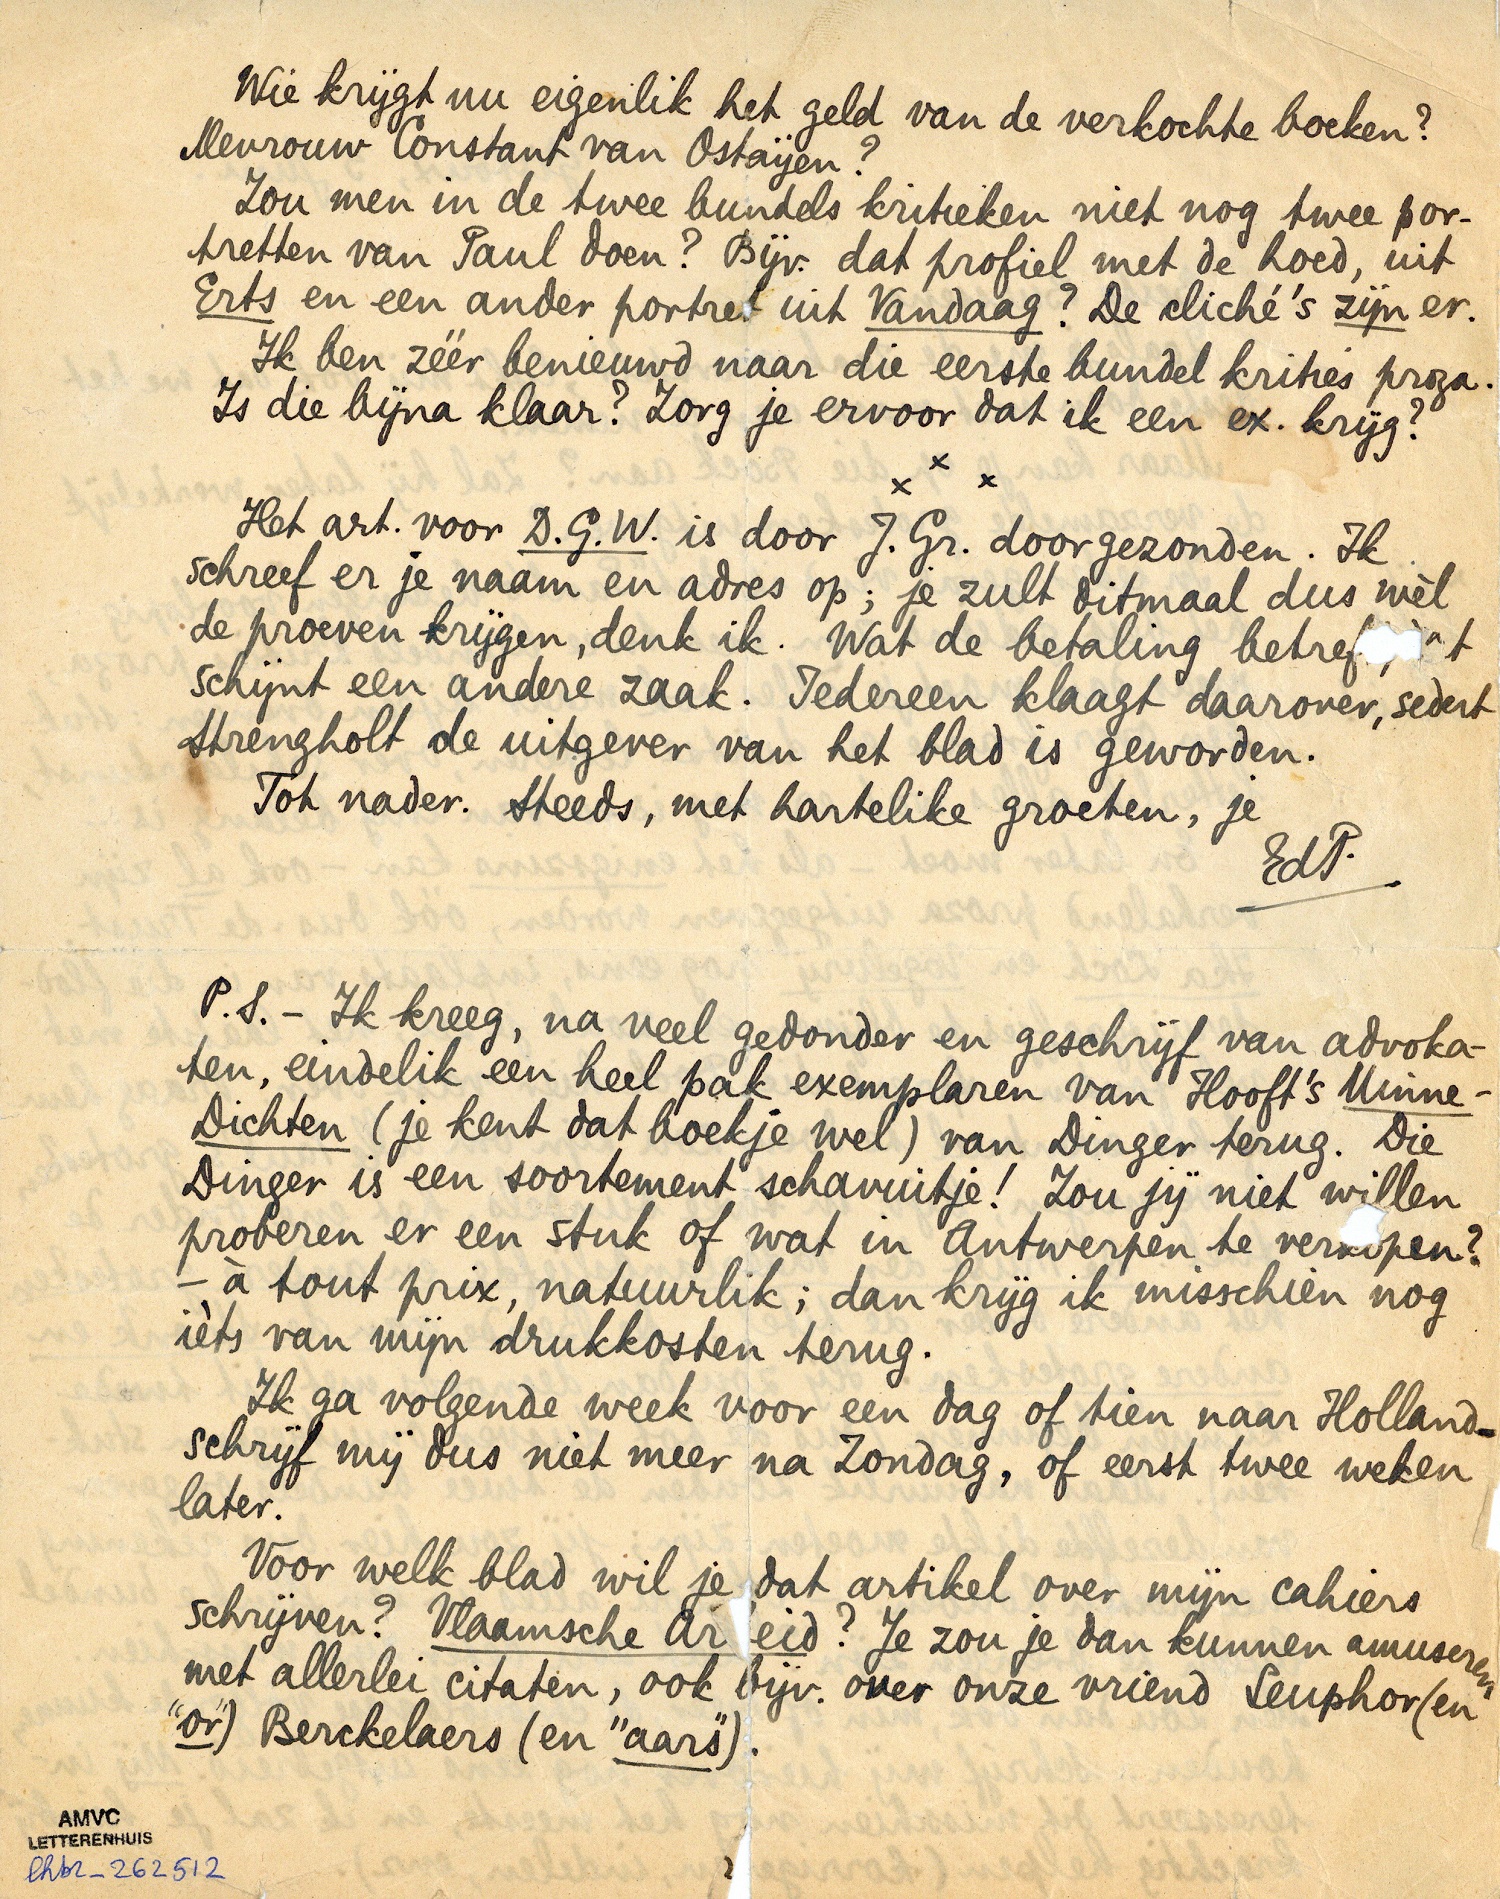 Wie krijgt nu eigenlik het geld van de verkochte boeken?
Mevrouw Constant van Ostaijen?
Zou men in de twee bundels kritieken niet nog twee por-
tretten van Paul doen? Bijv. dat profiel met de hoed, uit
Erts en een ander portret uit Vandaag? De cliché's zijn er.
Ik ben zéér benieuwd naar die eerste bundel krities proza.
Is die bijna klaar? Zorg je ervoor dat ik een ex. krijg?
x x x
Het art. voor D.G.W. is door J. Gr. doorgezonden. Ik
schreef er je naam en adres op; je zult ditmaal dus wèl
de proeven krijgen, denk ik. Wat de betaling
schijnt een andere zaak. Iedereen klaagt daarover, sedert
Strengholt de uitgever van het blad is geworden.
Tot nader. Steeds, met hartelike groeten, je
EdP.
P.S. – Ik kreeg, na veel gedonder en geschrijf van advoka-
ten, eindelik een heel pak exemplaren van Hooft's Minne-
Dichten (je kent dat boekje wel) van Dinger terug. Die
Dinger is een soortement schavuitje! Zou jij niet willen
proberen er een stuk of wat in Antwerpen te verkopen?
– à tout prix, natuurlik; dan krijg ik misschien nog
ièts van mijn drukkosten terug.
Ik ga volgende week voor een dag of tien naar Holland–
schrijf mij dus niet meer na Zondag, of eerst twee weken
later.
Voor welk blad wil je dat artikel over mijn cahiers
schrijven? Vlaamsche Arbeid? Je zou je dan kunnen amuseren
met allerlei citaten, ook bijv. over onze vriend Seuphor (en
"or") Berckelaers (en "aars").
AMVC
LETTERENHUIS
lhbr_262512